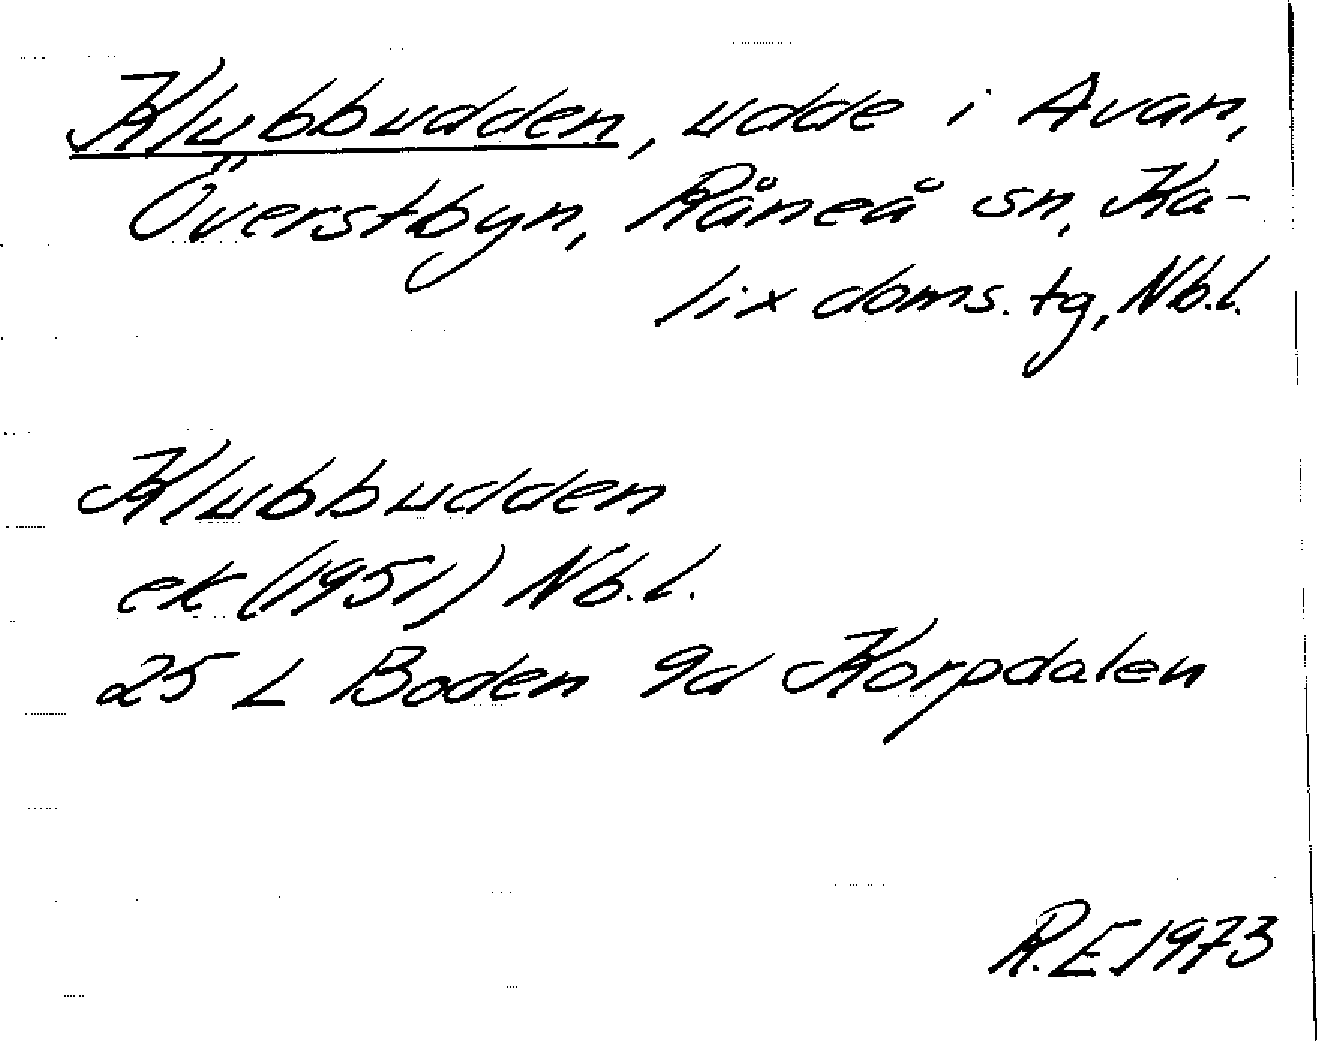 Klubbudden, udde i Avan,
Överstbyn, Råneå sn, Ka-
lix doms.tg, Nb.l.
Klubbudden
ek (1951) Nb.l.
25 L Boden 9d Korpdalen
R.E.1973